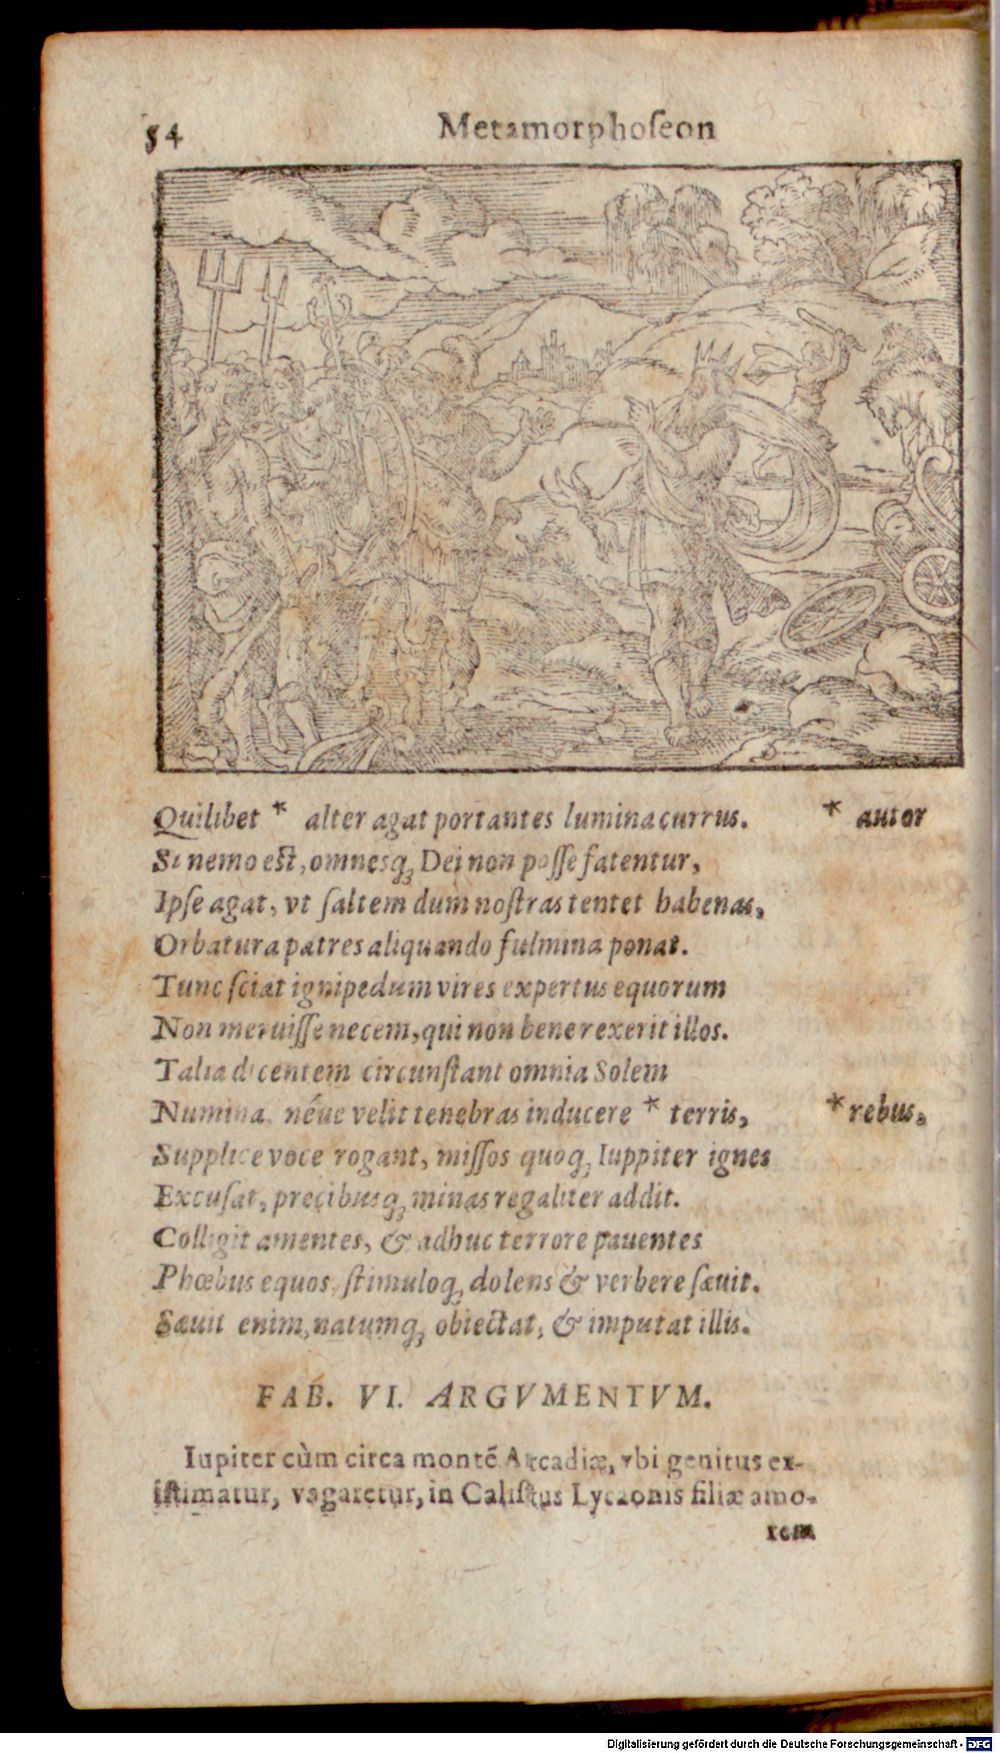 54 Metamorphoſeon
Quilibet * alter agat portantes lumina currus. * autor
Si nemo est, omnesq́; Dei non poſſe fatentur,
Ipſe agat, vt ſaltem dum noſtras tentet habenas,
Orbatura patres aliquando fulmina ponat.
Tunc ſciat ignipedum vires expertus equorum
Non meruiſſe necem, qui non bene rexerit illos.
Talia dicentem circunſtant omnia Solem
Numina, néue velit tenebras inducere * terris, * rebus,
Supplice voce rogant, miſſos quoq́; Iuppiter ignes
Excuſat, precibusq́; minas regaliter addit.
Colligit amentes, & adhuc terrore pauentes
Phœbus equos, ſtimuloq́; dolens & verbere ſæuit.
Sæuit enim, natumq́; obiectat, & imputat illis.
FAB. VI. ARGVMENTVM.
Iupiter cùm circa montē Arcadiæ, vbi genitus ex-
iſtimatur, vagaretur, in Caliſtus Lycaonis filiæ amo-
rem
Digitalisierung gefördert durch die Deutsche Forschungsgemeinschaft - DFG